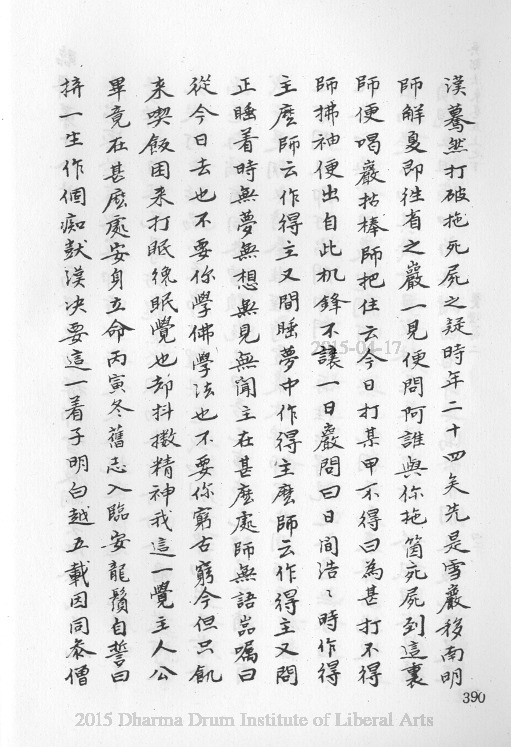 漢驀然打破拖死屍之疑時年二十四矣先是雪巖移南明
師解夏即往省之巖一見便問阿誰與你拖箇死屍到這裏
師便喝巖拈棒師把住云今日打某甲不得曰為甚打不得
師拂袖便出自此机鋒不讓一日巖問曰日间浩〻時作得
主麼師云作得主又問睡夢中作得主麼師云作得主又問
正睡着時無夢無想無見無聞主在甚麼處師無語巖囑曰
從今日去也不要你學佛學法也不要你窮古窮今但只飢
来喫飯困来打眠纔眠覺也却抖擻精神我這一覺主人公
畢竟在甚麽處安身立命丙寅冬舊志入臨安龍鬚自誓曰
拚一生作個痴獃漢决要這一着子明白越五載因同叅僧
390
2015-04-17
2015 Dharma Drum Institute of Liberal Arts